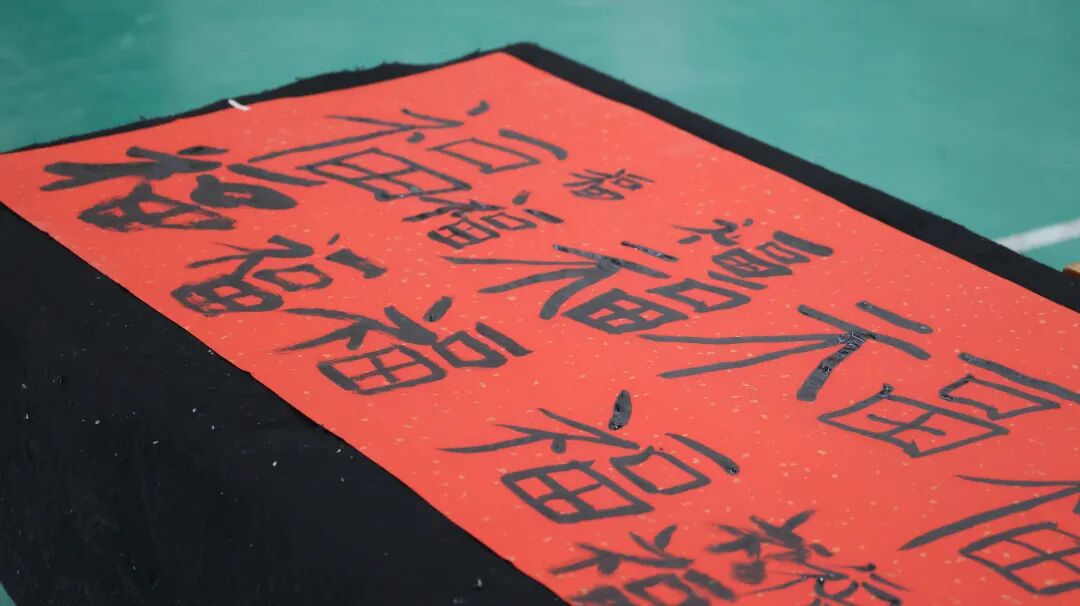 福
福
福
福
福
福
福
福
福
福
福
福